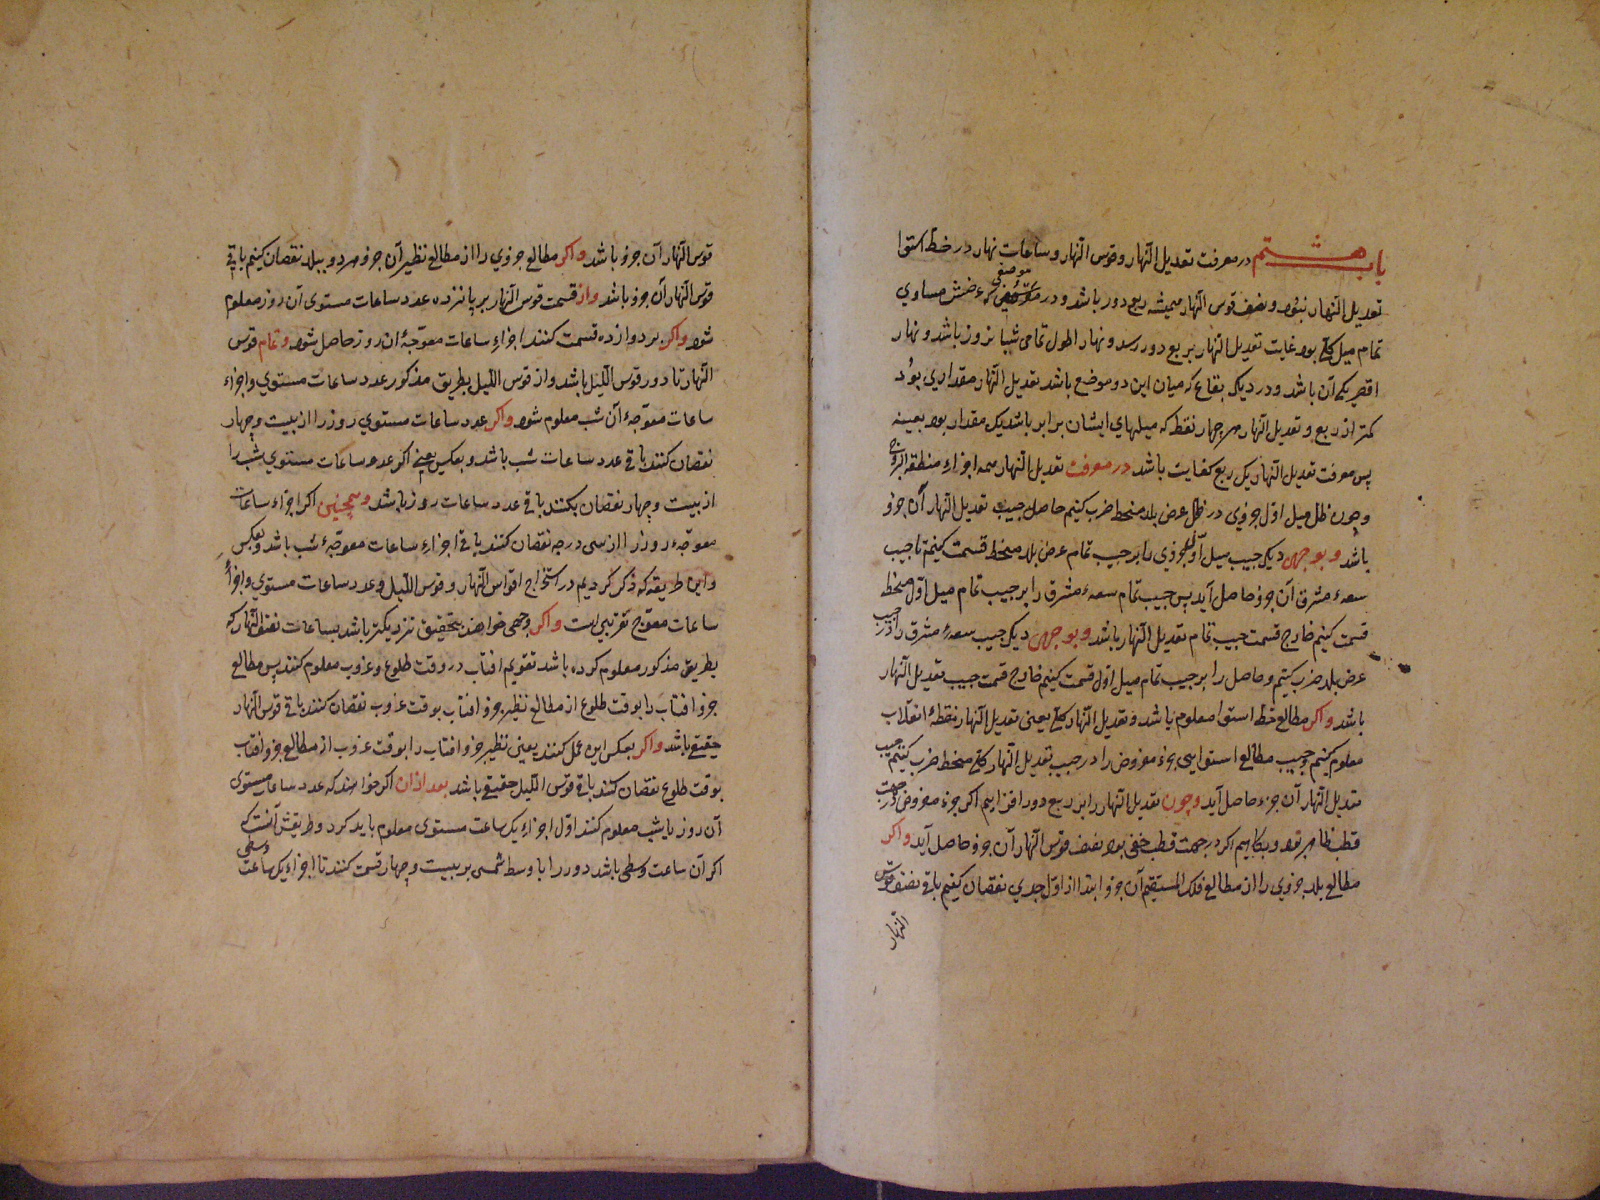 باب هشتم در معرفت تعدیل النهار و قوس النهار و ساعات نهار در خط استوا
تعدیل النهار نبود و نصف قوس النهار همیشه ربع دور باشد و در موضعی که عرضش مساوی
تمام میل کلی بود غایت تعدیل النهار بربع دور رسد و نهار اطول تمامی شبانروز باشد و نهار
اقصر یک آن باشد و در دیگر بقاع که میان این دو موضع باشد تعدیل النهار مقداری بود
کمتر از ربع و تعدیل النهار هر چهار نقطه که میلهای ایشان برابر باشد یک مقدار بود بعینه
پس معرفت تعدیل النهار یک ربع کفایت باشد در معرفت تعدیل النهار همه اجزاء منطقة البروج
و چون ظل میل اول جزوی در ظل عرض بلد منحط ضرب کنیم حاصل جیب تعدیل النهار آن جزو
باشد و بوجهی دیگر جیب میل اول جزوی را بر جیب تمام عرض بلد منحط قسمت کنیم تا جیب
سعهٔ مشرق آن جزو حاصل آید پس جیب تمام سعهٔ مشرق را بر جیب تمام میل اول منحط
قسمت کنیم خارج قسمت جیب تمام تعدیل النهار باشد و بوجهی دیگر جیب سعهٔ مشرق را در جیب
عرض بلد ضرب کنیم و حاصل را بر جیب تمام میل اول قسمت کنیم خارج قسمت جیب تعدیل النهار
باشد و اگر مطالع خط استوا معلوم باشد و تعدیل النهار کلی یعنی تعدیل النهار نقطهٔ انقلاب
معلوم کنیم جیب مطالع استوایی جزء مفروض را در جیب تعدیل النهار کلی منحط ضرب کنیم جیب
تعدیل النهار آن جزء حاصل آید و چون تعدیل النهار را بر ربع دور افزاییم اگر جزء مفروض در جهت
قطب ظاهر بود و بکاهیم اگر در جهت قطب خفی بود نصف قوس النهار آن جزو حاصل آید و اگر
مطالع بلد جزوی را از مطالع فلک المستقیم آن جزو ابتدا از اول جدی نقصان کنیم باقی نصف قوس
النهار
قوس النهار آن جزو باشد و اگر مطالع جزوی را از مطالع نظیر آن جزو هر دو ببلد نقصان کنیم باقی
قوس النهار آن جزو باشد و از قسمت قوس النهار بر پانزده عدد ساعات مستوی آن روز معلوم
شود و اگر بر دوازده قسمت کنند اجزاء ساعات معوجهٔ آن روز حاصل شود و تمام قوس
النهار تا دور قوس اللیل باشد و از قوس اللیل بطریق مذکور عدد ساعات مستوی و اجزاء
ساعات معوجهٔ آن شب معلوم شود و اگر عدد ساعات مستوی روز را از بیست و چهار
نقصان کنند باقی عدد ساعات شب باشد و بعکس یعنی اگر عدد ساعات مستوی شب را
از بیست و چهار نقصان بکنند باقی عدد ساعات روز باشد و همچنین اگر اجزاء ساعات
معوجهٔ روز را از سی درجه نقصان کنند باقی اجزاء ساعات معوجهٔ شب باشد و بعکس
و این طریقه که ذکر کردیم در استخراج اقواس النهار و قوس اللیل و عدد ساعات مستوی و اجزاء
ساعات معوج تقریبی است و اگر وجهی خواهند بتحقیق نزدیکتر باشد بساعات نصف النهار که
بطریق مذکور معلوم کرده باشد تقویم افتاب در وقت طلوع و غروب معلوم کنند پس مطالع
جزو افتاب را بوقت طلوع از مطالع نظیر جزو افتاب بوقت غروب نقصان کنند باقی قوس النهار
حقیقی باشد و اگر بعکس این عمل کنند یعنی نظیر جزو افتاب را بوقت غروب از مطالع جزو افتاب
بوقت طلوع نقصان کنند باقی قوس اللیل حقیقی باشد بعد از ان اگر خواهند که عدد ساعات مستوی
آن روز یا شب معلوم کنند اول اجزاء یک ساعت مستوی معلوم باید کرد و طریقش آنست که
اگر آن ساعت وسطی باشد دور را با وسط شمس بر بیست و چهار قسمت کنند تا اجزاء یک ساعت وسطی